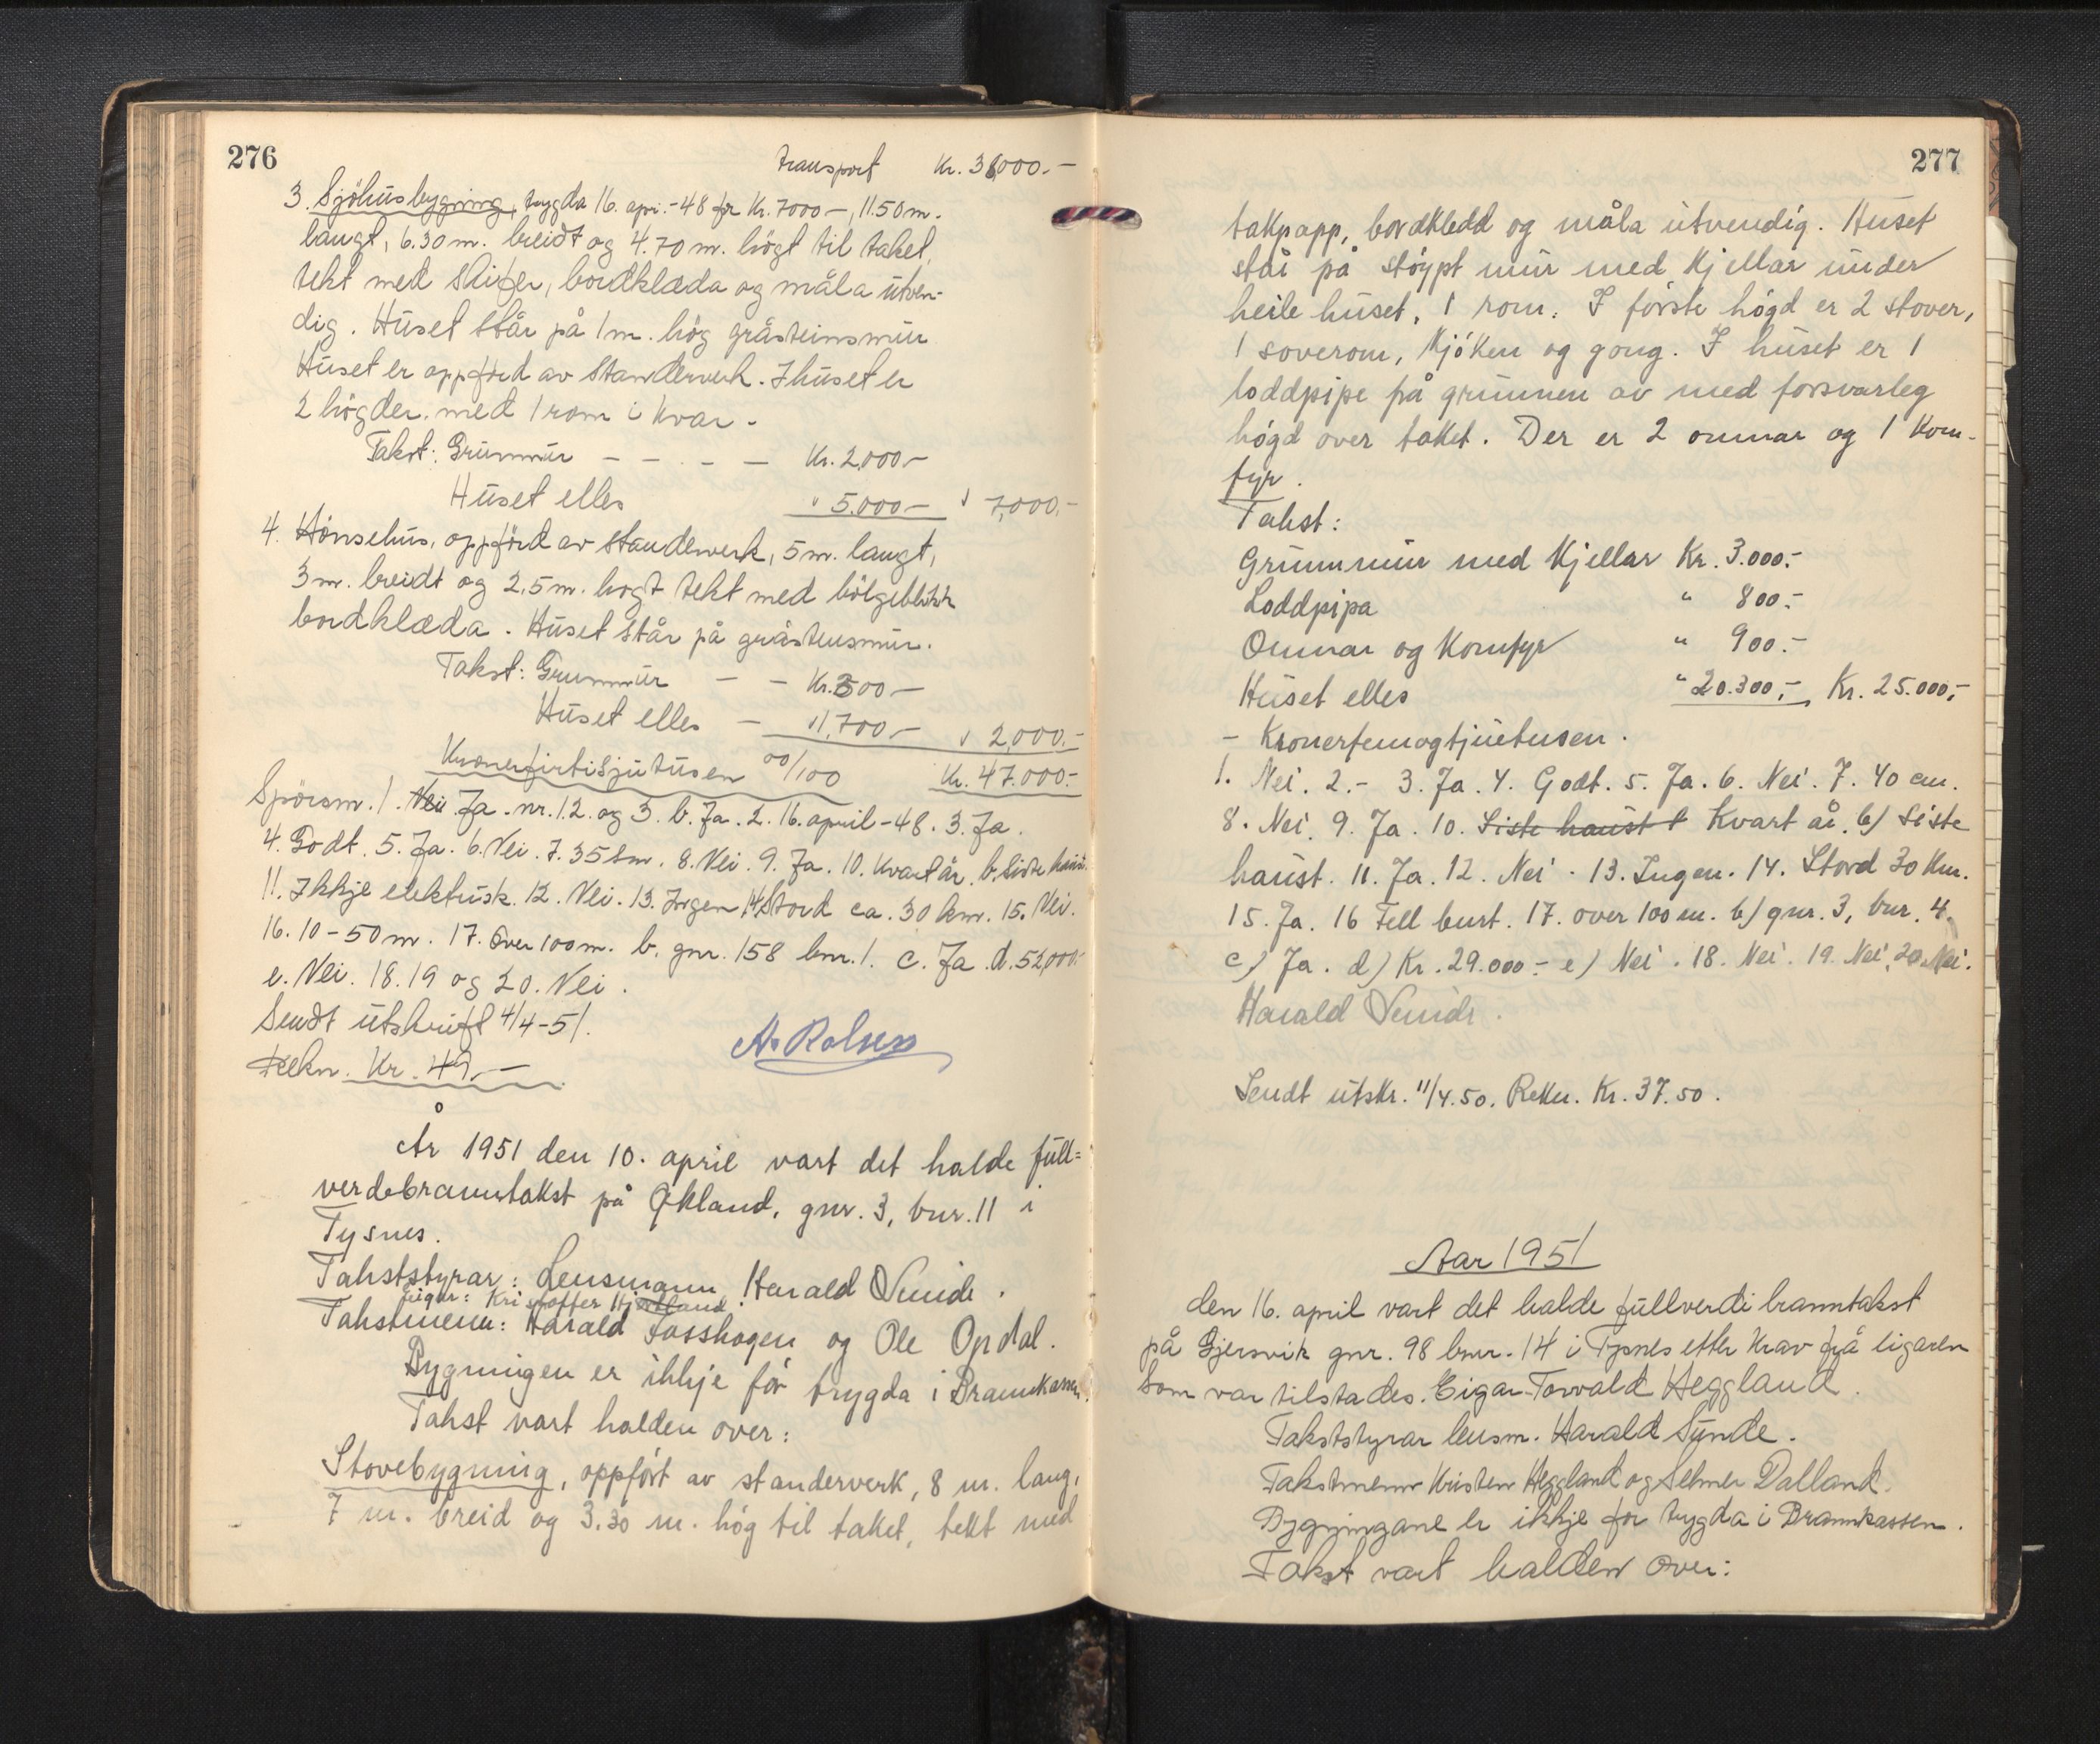 276
transport Kr. 38,000.-
3. Sjöhusbygning, trygda 16. apr.-48 for Kr. 7000-, 11.50 m.
langt, 6.30 m. breidt og 4.70 m. högt til taket,
tekt med skifer, bordklæda og måla utven-
dig. Huset står på 1 m. hög gråsteinsmur
Huset er oppförd av standerverk. I huset er
2 högder med 1 rom i kvar.
Takst: Grunnmur - - - - Kr. 2.000-
Huset elles " 5.000- " 7,000.-
4. Hönsehus, oppförd av standerverk, 5 m. langt,
3 m. breidt og 2,5 m. hogt tekt med bölgeblikk
bordklæda. Huset står på gråsteinsmur.
Takst: Grunnmur - - Kr. 300-
Huset elles - " 1,700- " 2,000.-
Kronerfirtisjutusen 00/100 Kr. 47.000.-
Spörsm. 1. Nei Ja. nr. 1.2. og 3. b. Ja. 2. 16. april-48. 3. Ja.
4. Godt. 5. Ja. 6. Nei. 7. 35 sm. 8. Nei. 9. Ja. 10. Kvart år. b. Siste haust.
11. Ikkje elektrisk. 12. Nei. 13. Ingen 14. Stord ca. 30 km. 15. Nei.
16. 10-50 m. 17. Över 100 m. b. gnr. 158 bnr. 1. c. Ja. d. 52,000.-
e. Nei. 18. 19 og 20. Nei.
Sendt utskrift 4/4-51.
Rekn. Kr. 49.-
År 1951 den 10. april vart det halde full=
verdebranntakst på Økland, gnr. 3, bnr. 11 i
Tysnes.
Takststyrar: Lensmann Harald Sunde.
Eigar: Kristoffer Hjortland
Takstmenn: Harald Fosshagen og Ole Opdal.
Bygningen er ikkje för trygda i Brannkassen.
Takst vart halden over:
Stovebygning, oppfört av standerverk, 8 m. lang,
7 m. breid og 3.30 m. hög til taket, tekt med
277
takpapp, bordkledd og måla utvendig. Huset
står på støypt mur med kjellar under
heile huset, 1 rom. I første høgd er 2 stover,
1 soverom, kjøken og gong. I huset er 1
loddpipe på grunnen av med forsvarleg
høgd over taket. Der er 2 omnar og 1 kom-
fyr.
Takst:
Grunnmur med kjellar Kr. 3.000.-
Loddpipa " 800.-
Omnar og komfyr " 900.-
Huset elles " 20.300.- Kr. 25.000,-
- Kronerfemogtjuetusen.
1. Nei. 2.- 3. Ja. 4. Godt. 5. Ja. 6. Nei. 7. 40 cm.
8. Nei. 9. Ja. 10. Siste haust Kvart år. b) Siste
haust. 11. Ja. 12. Nei. 13. Ingen. 14. Stord 30 km.
15. Ja. 16 Fell burt. 17. over 100 m. b) gnr. 3, bnr. 4.
c) Ja. d) Kr. 29.000.- e) Nei. 18. Nei. 19. Nei. 20. Nei.
Harald Sunde.
Sendt utskr. 11/4.50. Rekn. Kr. 37.50.
Aar 1951
den 16. april vart det halde fullverdi branntakst
på Gjersvik gnr. 98 bnr. 14 i Tysnes etter krav frå eigaren
som var tilstades. Eigar Torvald Heggland.
Takststyrar lensm. Harald Sunde.
Takstmenn Kristen Heggland og Selmer Dalland.
Bygningane er ikkje for trygda i Brannkassen.
Takst vart halden over: